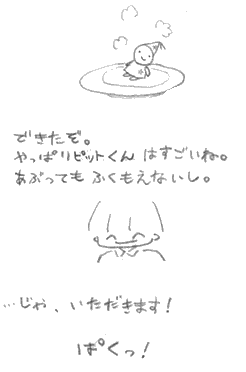 できたぞ。
やっぱりピットくん はすごいね。
あぶっても ふくもえないし。
…じゃ、いただきます！
ぱくっ！